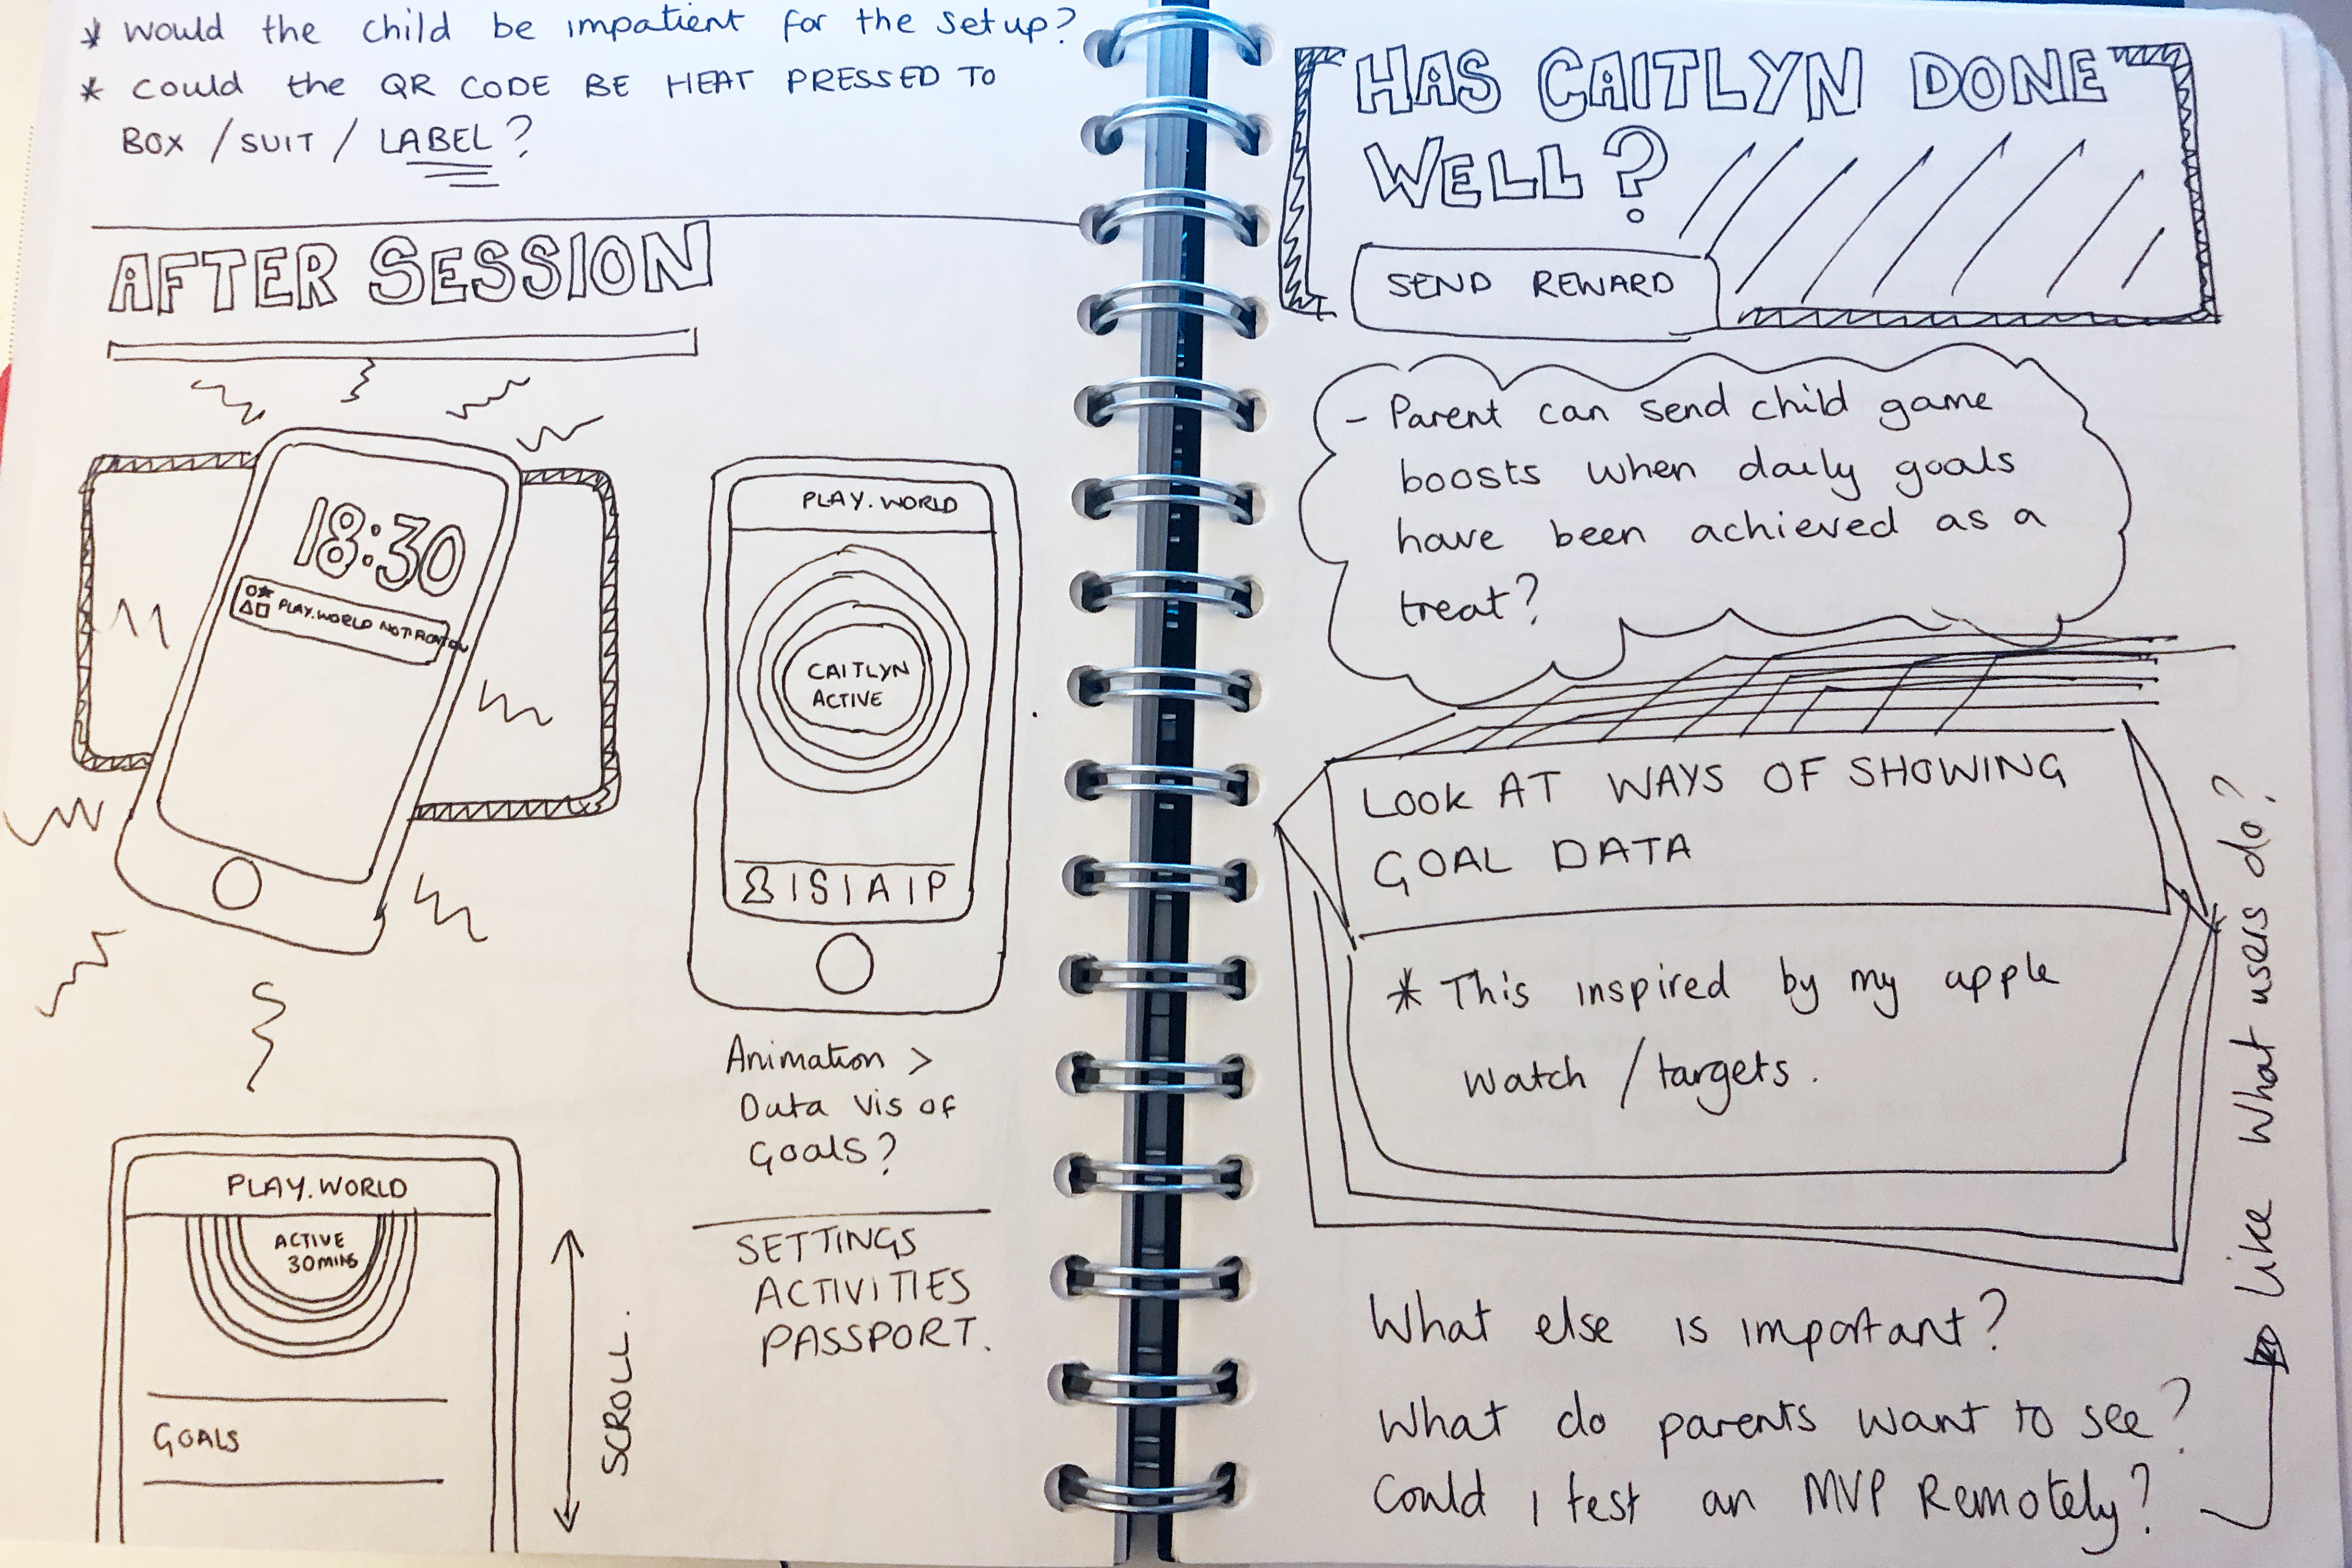 * Would the child be impatient for the set up?
* Could the QR CODE BE HEAT PRESSED TO
BOX / SUIT / LABEL?
AFTER SESSION
18:30
PLAY.WORLD NOTIFICATION
PLAY.WORLD
CAITLYN
ACTIVE
S | A | P
Animation >
Data Vis of
Goals?
SETTINGS
ACTIVITIES
PASSPORT.
PLAY.WORLD
ACTIVE
30 MINS
GOALS
SCROLL.
HAS CAITLYN DONE
WELL?
SEND REWARD
- Parent can send child game
boosts when daily goals
have been achieved as a
treat?
LOOK AT WAYS OF SHOWING
GOAL DATA
* This inspired by my apple
watch / targets.
What else is important?
What do parents want to see?
Could I test an MVP Remotely?
Like What users do?